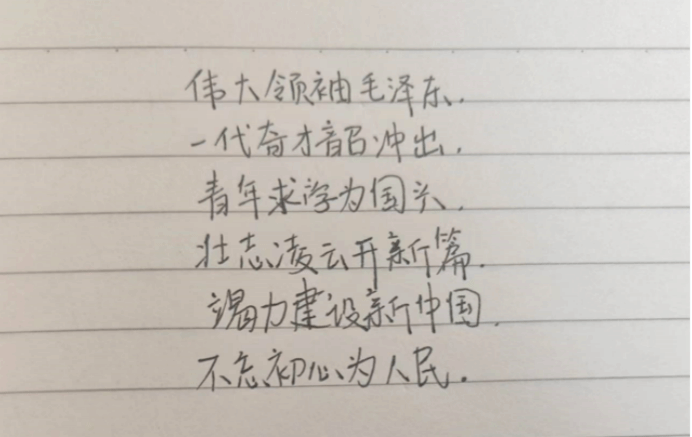 伟大领袖毛泽东.
一代奇才韶冲出.
青年求学为国兴.
壮志凌云开新篇.
竭力建设新中国.
不忘初心为人民.